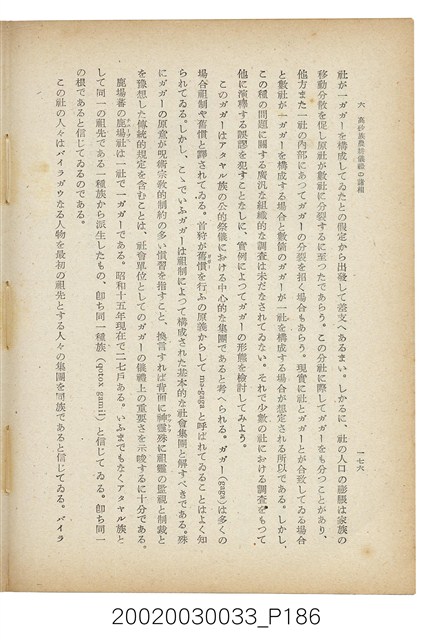 六 高砂族農耕儀禮の諸相
一七六
社が一ガガーを構成してゐたとの假定から出發して差支へあるまい。しかるに、社の人口の膨脹は家族の
移動分散を促し原社が數社に分裂するに至つたであらう。この分社に際してガガーをも分つことがあり、
他方また一社の內部にあつてガガーの分裂を招く場合もあらう。現實に社とガガーとが合致してゐる場合
と數社が一ガガーを構成する場合と數箇のガガーが一社を構成する場合が想定される所以である。しかし、
この種の問題に關する廣汎な組織的な調査は未だなされてゐない。それで少數の社における調査をもつて
他に演繹する誤謬を犯すことなしに、實例によつてガガーの形態を檢討してみよう。
このガガーはアタヤル族の公的祭儀における中心的な集團であると考へられる。ガガー(gaga)は多くの
場合祖制や舊慣と譯されてゐる。首狩が舊慣を行ふの原義からして mə-gaga と呼ばれてゐることはよく知
られてゐる。しかし、こゝでいふガガーは祖制によつて構成された基本的な社會集團と解すべきである。殊
にガガーの原意が呪術宗敎的制約の多い慣習を指すこと、換言すれば背面に神靈殊に祖靈の監視と制裁と
を豫想した傳統的規定を含むことは、社會單位としてのガガーの儀禮上の重要さを示唆するに十分である。
鹿場蕃の鹿場社は一社で一ガガーである。昭和十五年現在で二七戶ある。いふまでもなくアタヤル族と
して同一の祖先である一種族から派生したもの、卽ち同一種族(qutox gamil)と信じてゐる。卽ち同一
の根であると信じてゐるのである。
この社の人々はバイラガウなる人物を最初の祖先とする人々の集團を同族であると信じてゐる。バイラ
20020030033_P186